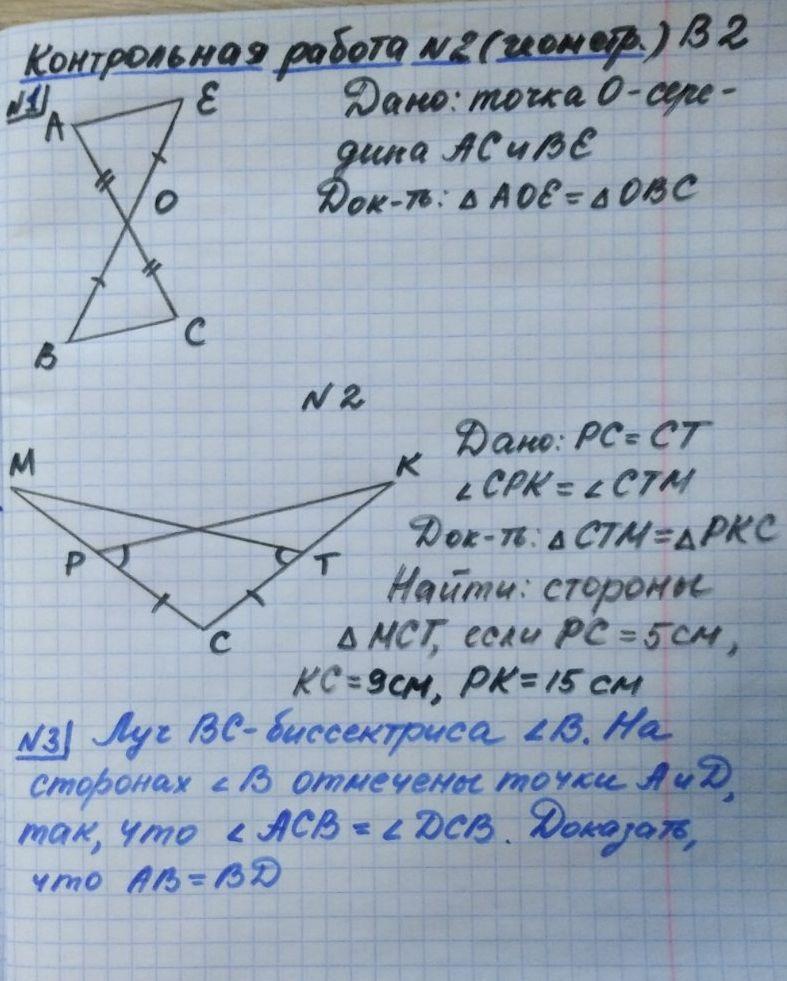 Контрольная работа №2 (геометр.) В2
№1
A
E
Дано: точка О-сере-
дина AC и BE
Док-ть: △AOE = △OBC
O
C
B
№2
Дано: PC = CT
∠CPK = ∠CTM
Док-ть: △CTM = △PKC
Найти: стороны
△MCT, если PC = 5 см,
KC = 9 см, PK = 15 см
M
K
P
T
C
№3 Луч BC - биссектриса ∠B. На
сторонах ∠B отмечены точки A и D,
так, что ∠ACB = ∠DCB. Доказать,
что AB = BD